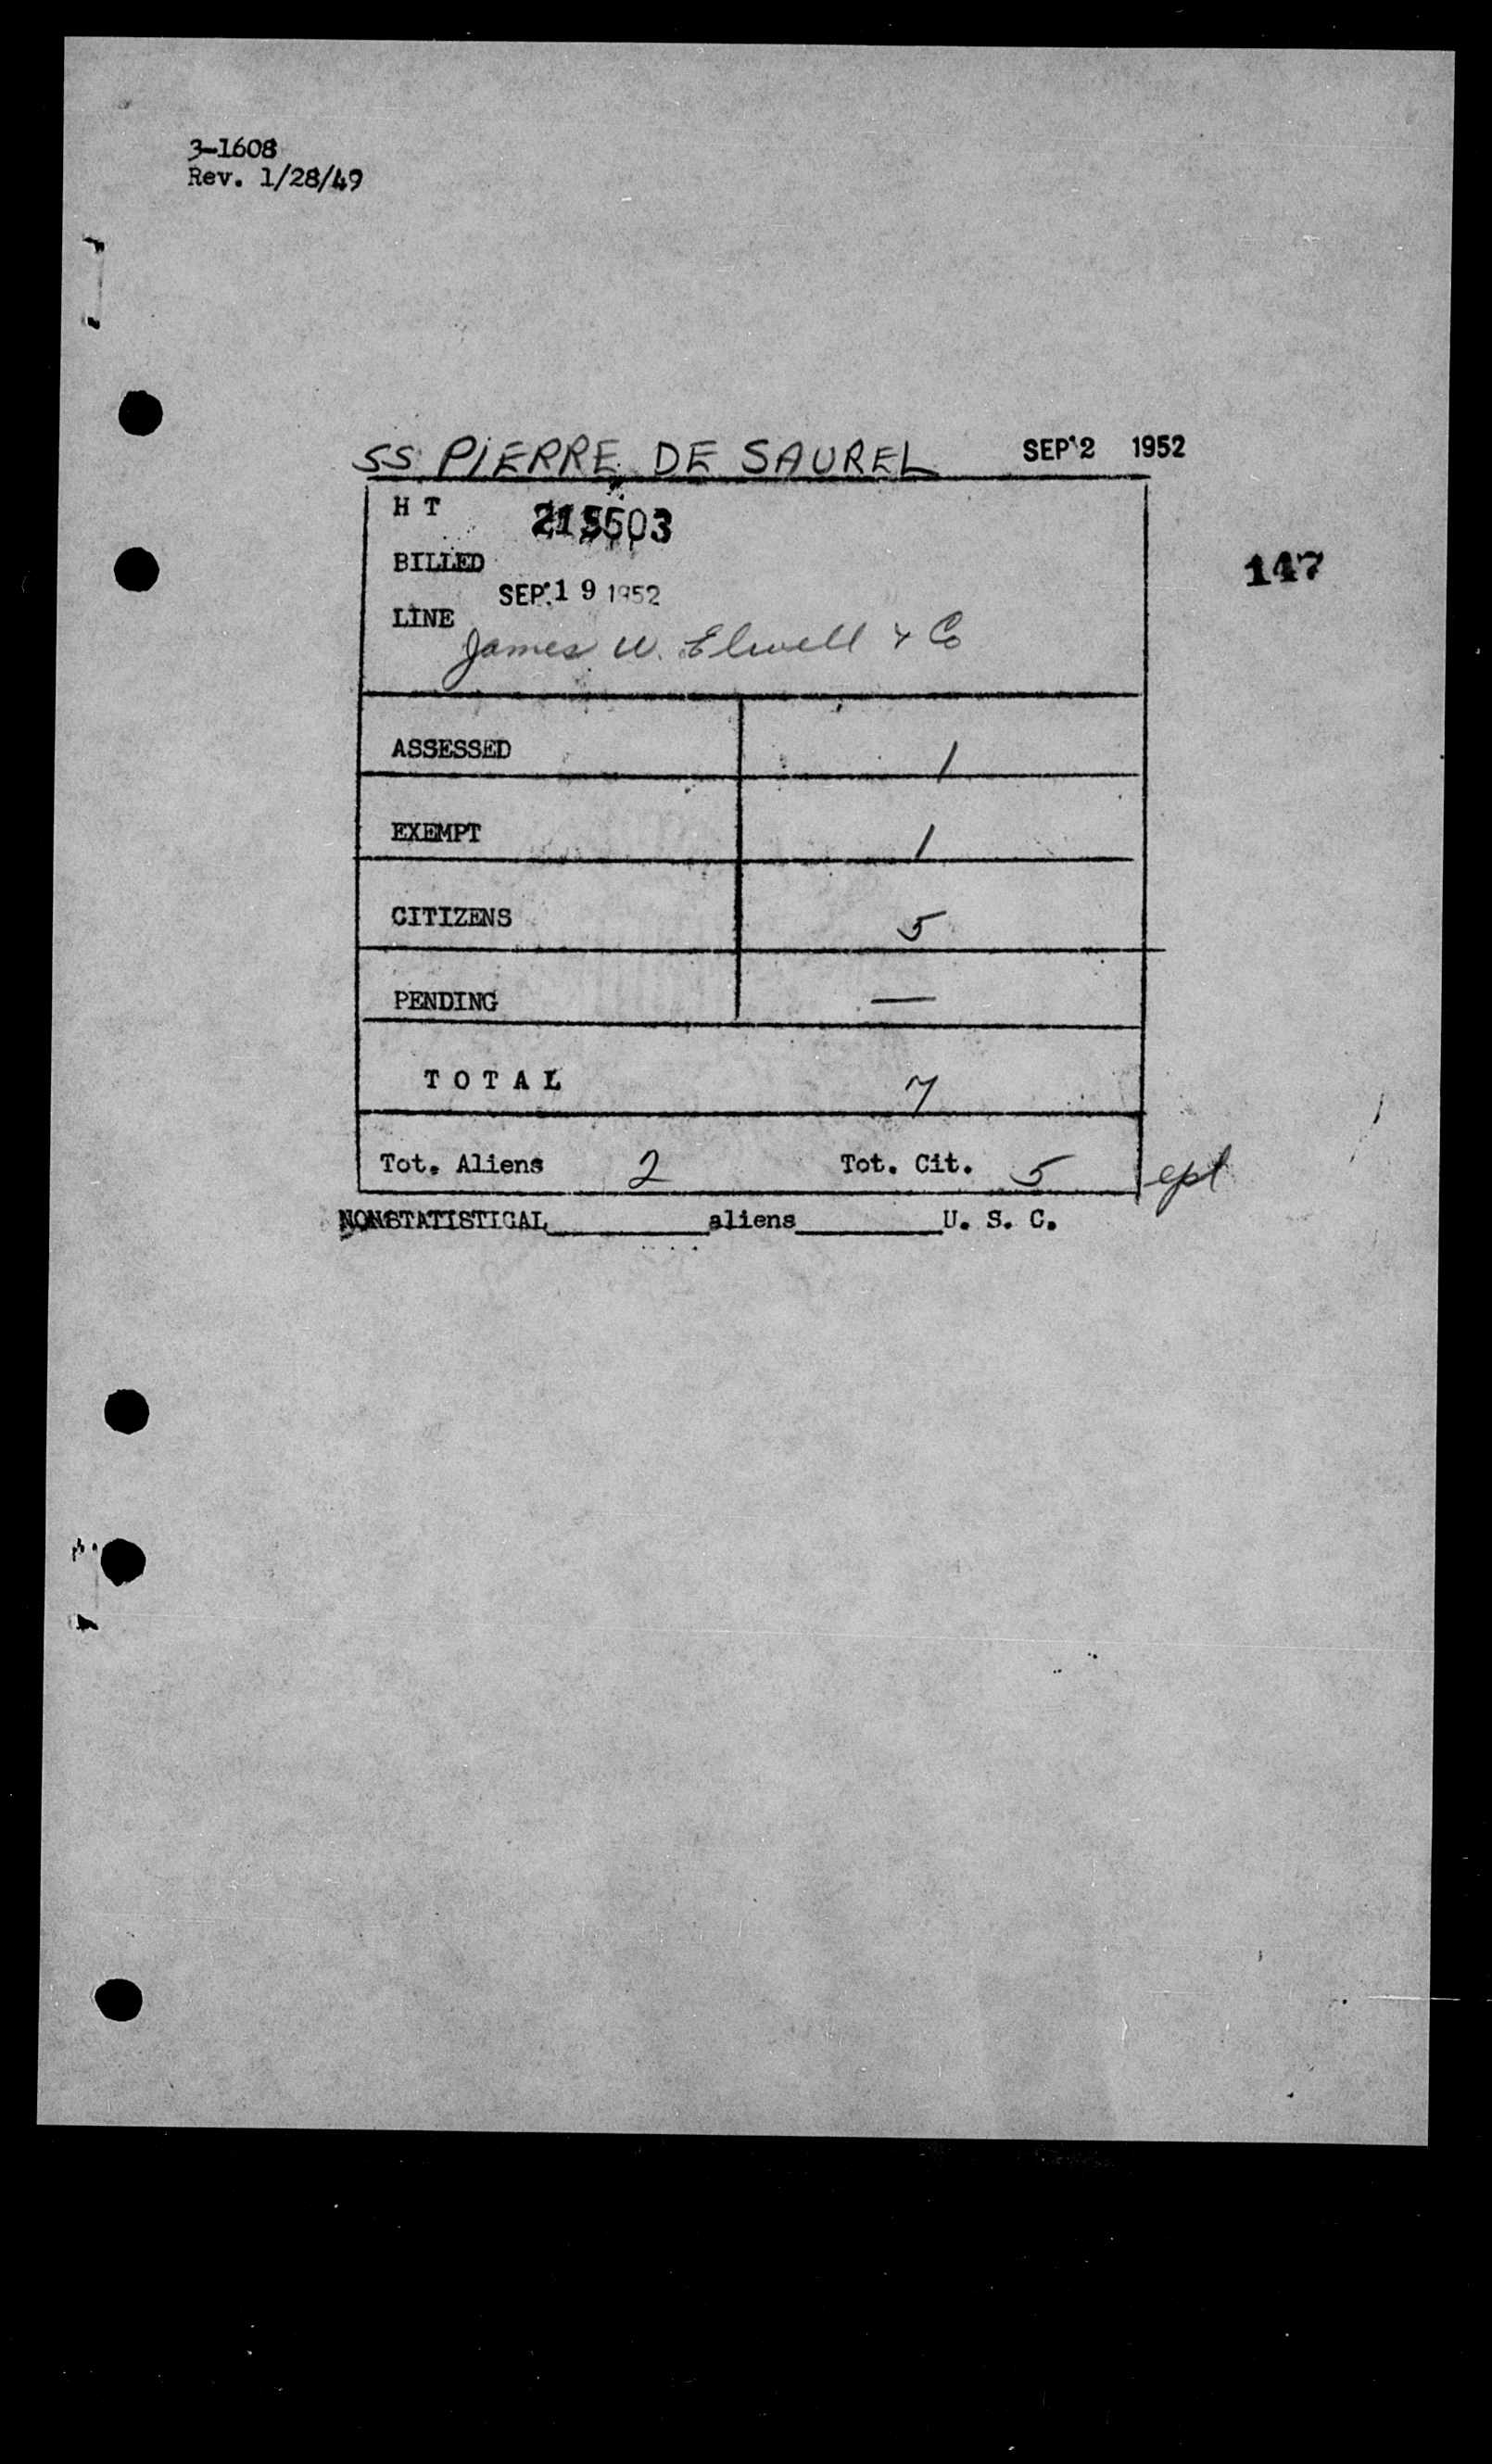 3-1608
Rev. 1/28/49
SS PIERRE DE SAUREL SEP 2 1952
H T 215503
BILLED
SEP 19 1952
147
LINE
James W. Elwell & Co
ASSESSED 1
EXEMPT 1
CITIZENS 5
PENDING —
TOTAL 7
Tot. Aliens 2 Tot. Cit. 5
NONSTATISTICAL__________aliens_________U. S. C.